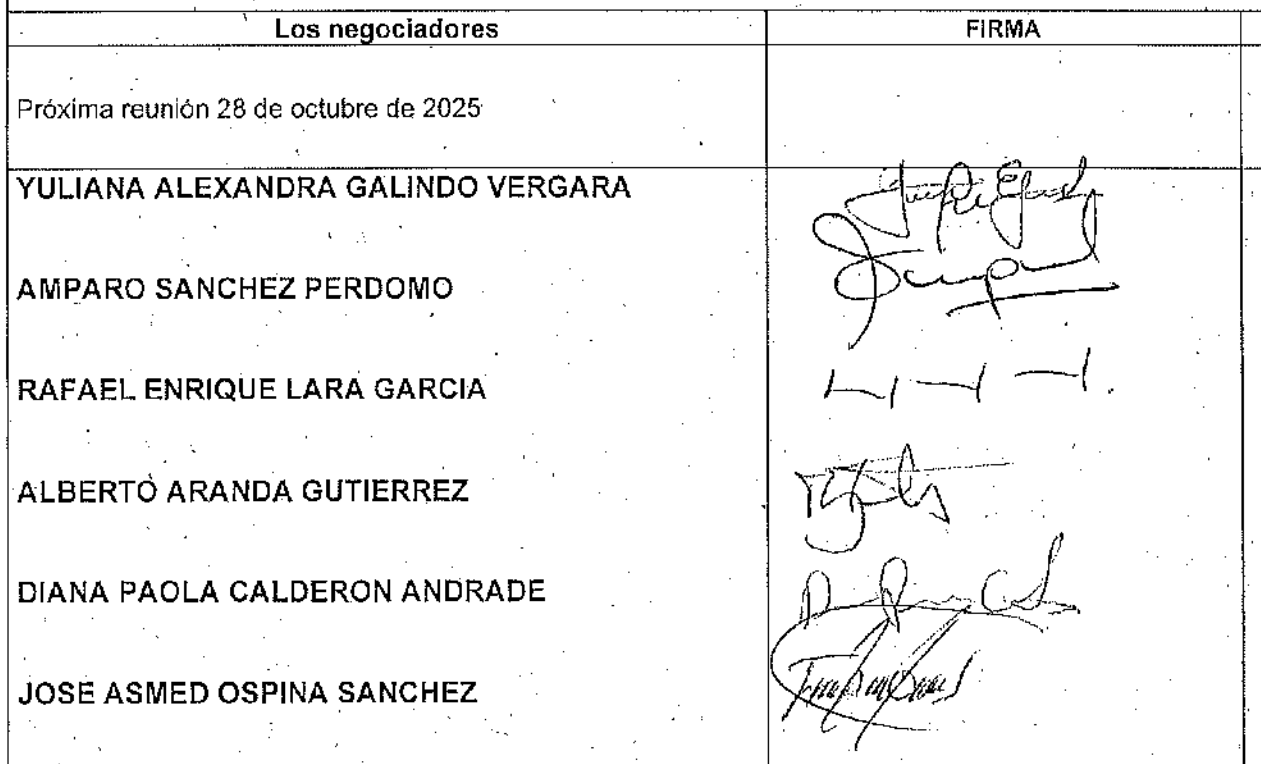 Los negociadores FIRMA
Próxima reunión 28 de octubre de 2025
YULIANA ALEXANDRA GALINDO VERGARA
AMPARO SANCHEZ PERDOMO
RAFAEL ENRIQUE LARA GARCIA
ALBERTO ARANDA GUTIERREZ
DIANA PAOLA CALDERON ANDRADE
JOSE ASMED OSPINA SANCHEZ